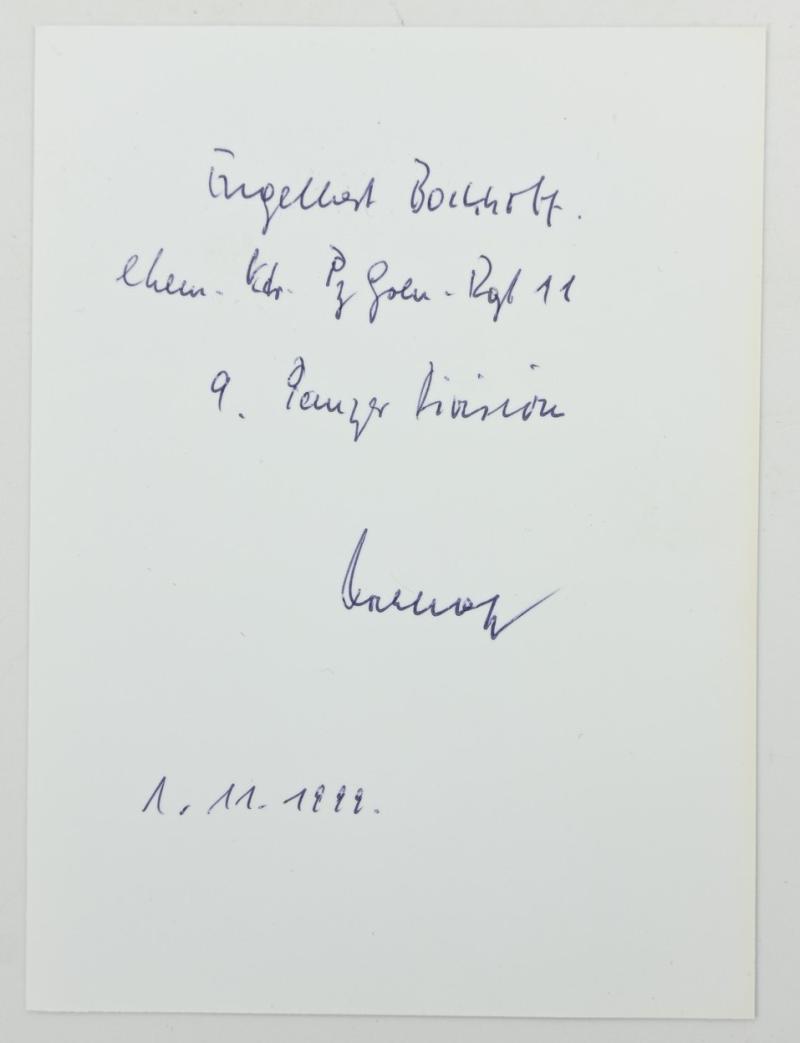 Engelbert Bockhoff.
ehem. Kdr. Pz Gren.-Rgt 11
9. Panzer Division
Bockhoff
1. 11. 1999.